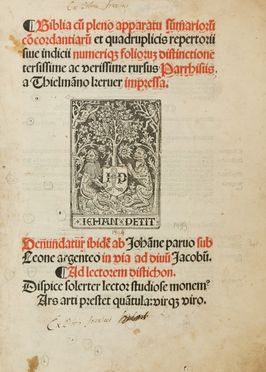 ¶Biblia cū pleno apparatu sūmarioruꝫ
cōcordantiarū et quadruplicis repertorii
siue indicii numeriqꝫ folioruꝫ distinctione
tersissime ac verissime rursus Parrhisiis
a Thielmāno keruer impressa.
I P
IEHAN PETIT
Denundatur ibidē ab Johāne paruo sub
Leone argenteo in via ad diuū Jacobū.
¶Ad lectorem distichon.
Dispice solerter lector studiose monemꝰ
Ars arti prestet quātula: virqꝫ viro.